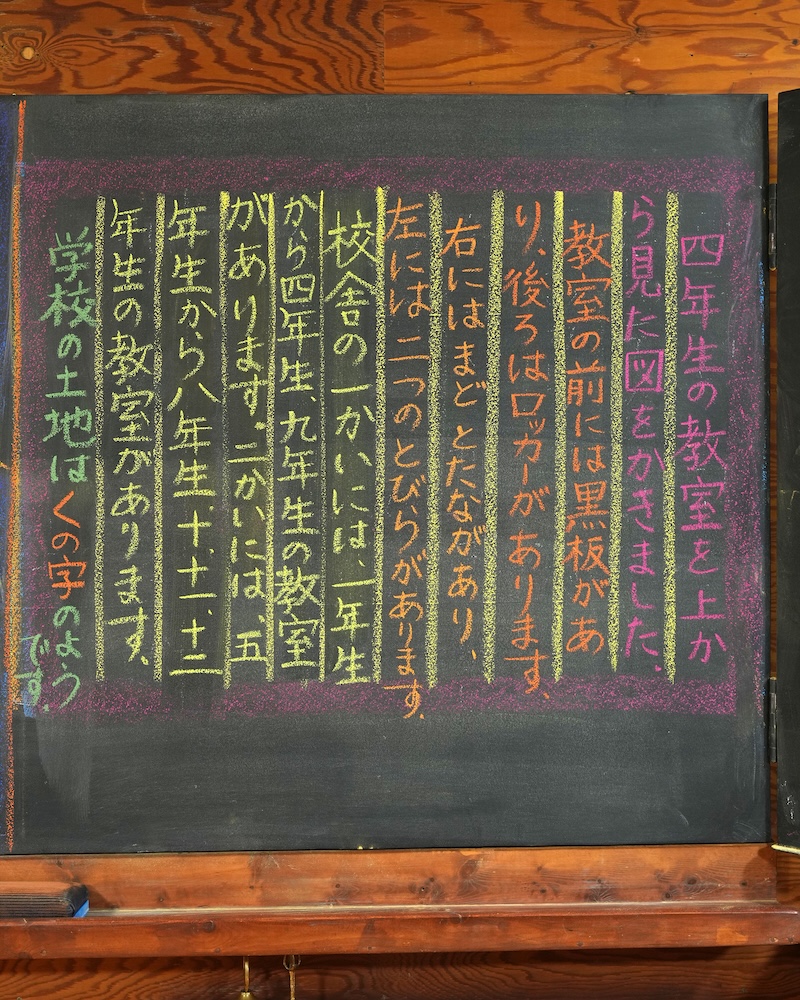 四年生の教室を上か
ら見た図をかきました。
教室の前には黒板があ
り、後ろはロッカーが あります。
右には まど とたながあり、
左には 二つのとびらがあります。
校舎の一かいには、一年生
から四年生、九年生の教室
があります。二かいには、五
年生から八年生、十、十一、十二
年生の教室があります。
学校の土地は くの字のよう
です。